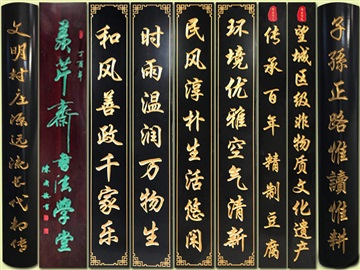 子孫正路惟讀惟耕
望城区级非物质文化遗产
传承百年 精制豆腐
环境优雅空气清新
民风淳朴生活悠闲
时雨温润万物生
和风善政千家乐
丁酉年
芹斋書法學堂
文明村庄源远流长代相传